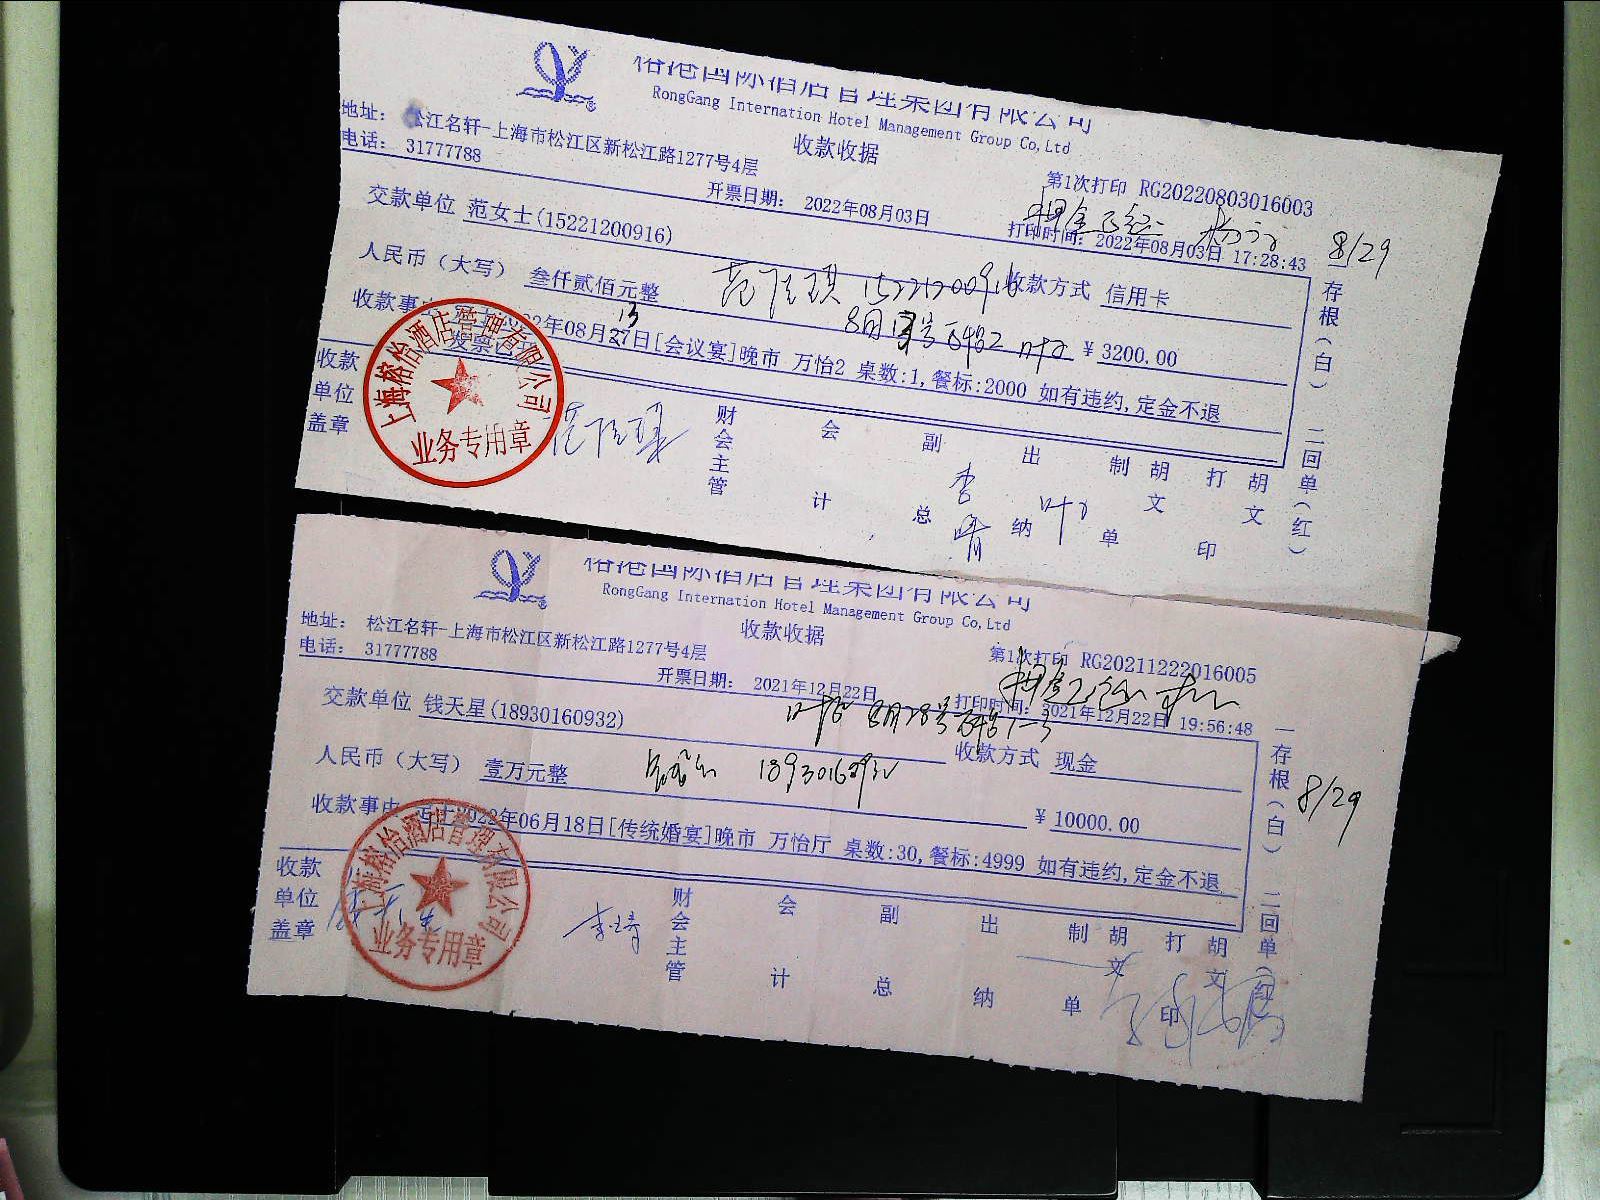 榕港国际酒店管理集团有限公司
RongGang Internation Hotel Management Group Co,Ltd
收款收据
地址： 松江名轩-上海市松江区新松江路1277号4层
电话： 31777788
第1次打印 RG20220803016003
开票日期： 2022年08月03日
打印时间：2022年08月03日 17:28:43
8/29
交款单位 范女士(15221200916)
收款方式 信用卡
人民币（大写） 叁仟贰佰元整
15221200916
¥ 3200.00
收款事由
22年08月27日[会议宴]晚市 万怡2 桌数:1,餐标:2000 如有违约,定金不退
13
收款单位盖章
上海榕怡酒店管理有限公司
业务专用章
财会主管 会计 副总 出纳 制单 胡文 打印 胡文
李靖
一存根(白) 二回单(红)
榕港国际酒店管理集团有限公司
RongGang Internation Hotel Management Group Co,Ltd
收款收据
地址： 松江名轩-上海市松江区新松江路1277号4层
电话： 31777788
第1次打印 RG20211222016005
开票日期： 2021年12月22日
打印时间：2021年12月22日 19:56:48
8月28号
交款单位 钱天星(18930160932)
收款方式 现金
人民币（大写） 壹万元整
18930160932
8/29
¥ 10000.00
收款事由 定于2022年06月18日[传统婚宴]晚市 万怡厅 桌数:30,餐标:4999 如有违约,定金不退
收款单位盖章
上海榕怡酒店管理有限公司
业务专用章
李靖
财会主管 会计 副总 出纳 制单 胡文 打印 胡文
一存根(白) 二回单(红)